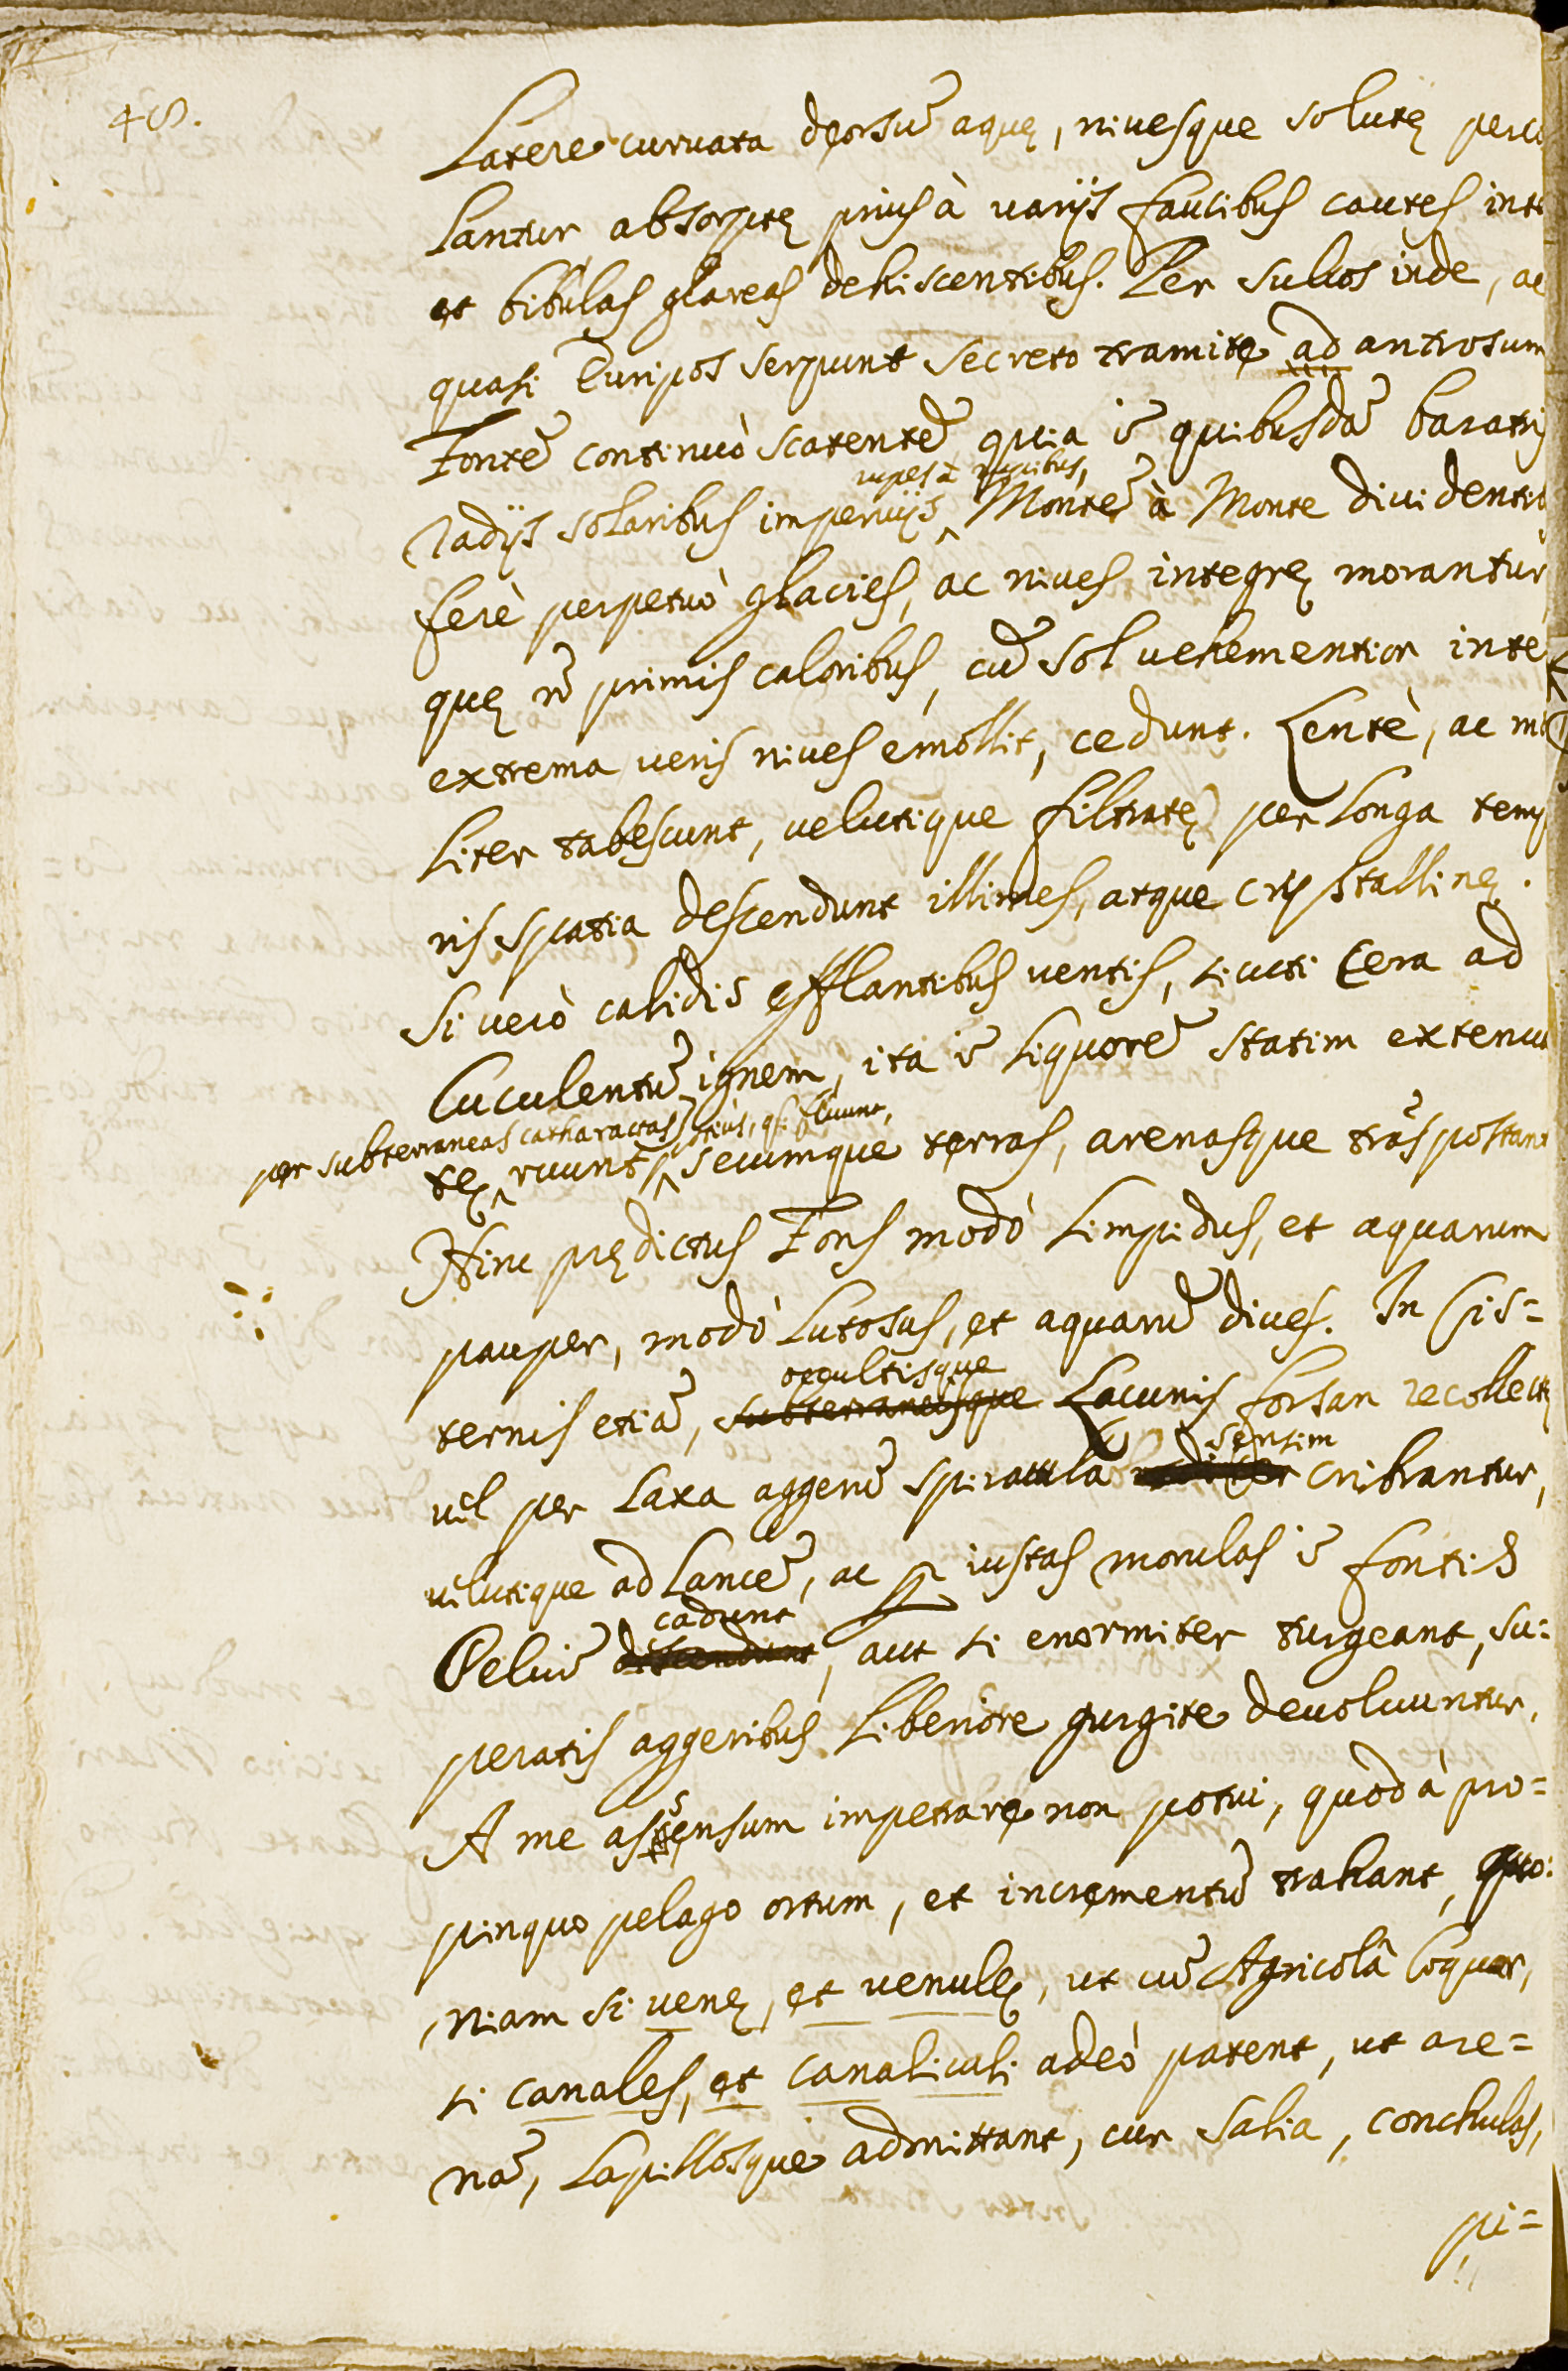 48.
Latere curuata deorsū aquę, niuesque solutę perco
lantur absorptę prius à varijs faucibus cautes int
et bibulas glareas dehiscentibus. Per sulcos inde, ac
quasi Euripos serpunt secreto tramite ad antrosum
Fontē continuò scatentē quia ī quibusdā baratris
rupes à rupibus,
radijs solaribus imperuijs ^ Montē à Monte diuidentib
ferè perpetuò glacies, ac niues integrę morantur
quę nō primis caloribus, cū sol vehementior inte
extrema veris niues emollit, cedunt. Lentè, ac mo
liter tabescunt, velutique filtratę per longa temp
ris spatia descendunt illimes, atque crystallinę.
Si verò calidis efflantibus ventis, sicuti cera ad
luculentū ignem, ita ī liquorē statim extenua
per subterraneas catharactas potiùs, qᷓ fluunt,
tę ^ ruunt ^ secumque terras, arenasque trāsportant
Hinc prędictus Fons modò limpidus, et aquarum
pauper, modò lutosus, et aquarū diues. In Cis=
occultisque
ternis etiā, subterraneisque Lacunis forsan recollectę
sensim
vel per laxa aggerū spiracula cribrantur,
velutique ad lancē, ac ꝑ iustas morulas ī fontis
cadunt
Peluī descendunt, aut si enormiter turgeant, su=
peratis aggeribus liberiore gurgite deuoluuntur,
A me assensum impetrare non potui, quòd à pro=
pinquo pelago ortum, et incrementū trahant, quo=
niam si venę, et venulę, ut cū Agricolâ loquar,
si canales, et canaliculi adeò patent, ut are=
nā, lapillosque admittant, cur salia, conchulas,
pi=